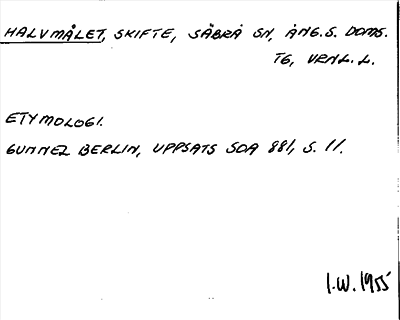 HALVMÅLET, SKIFTE, SÄBRÅ SN, ÅNG. S. DOMS.
TG, VRNL. L.
ETYMOLOGI.
GUNNEL BERLIN, UPPSATS SOA 881, S. 11.
I.W. 1955